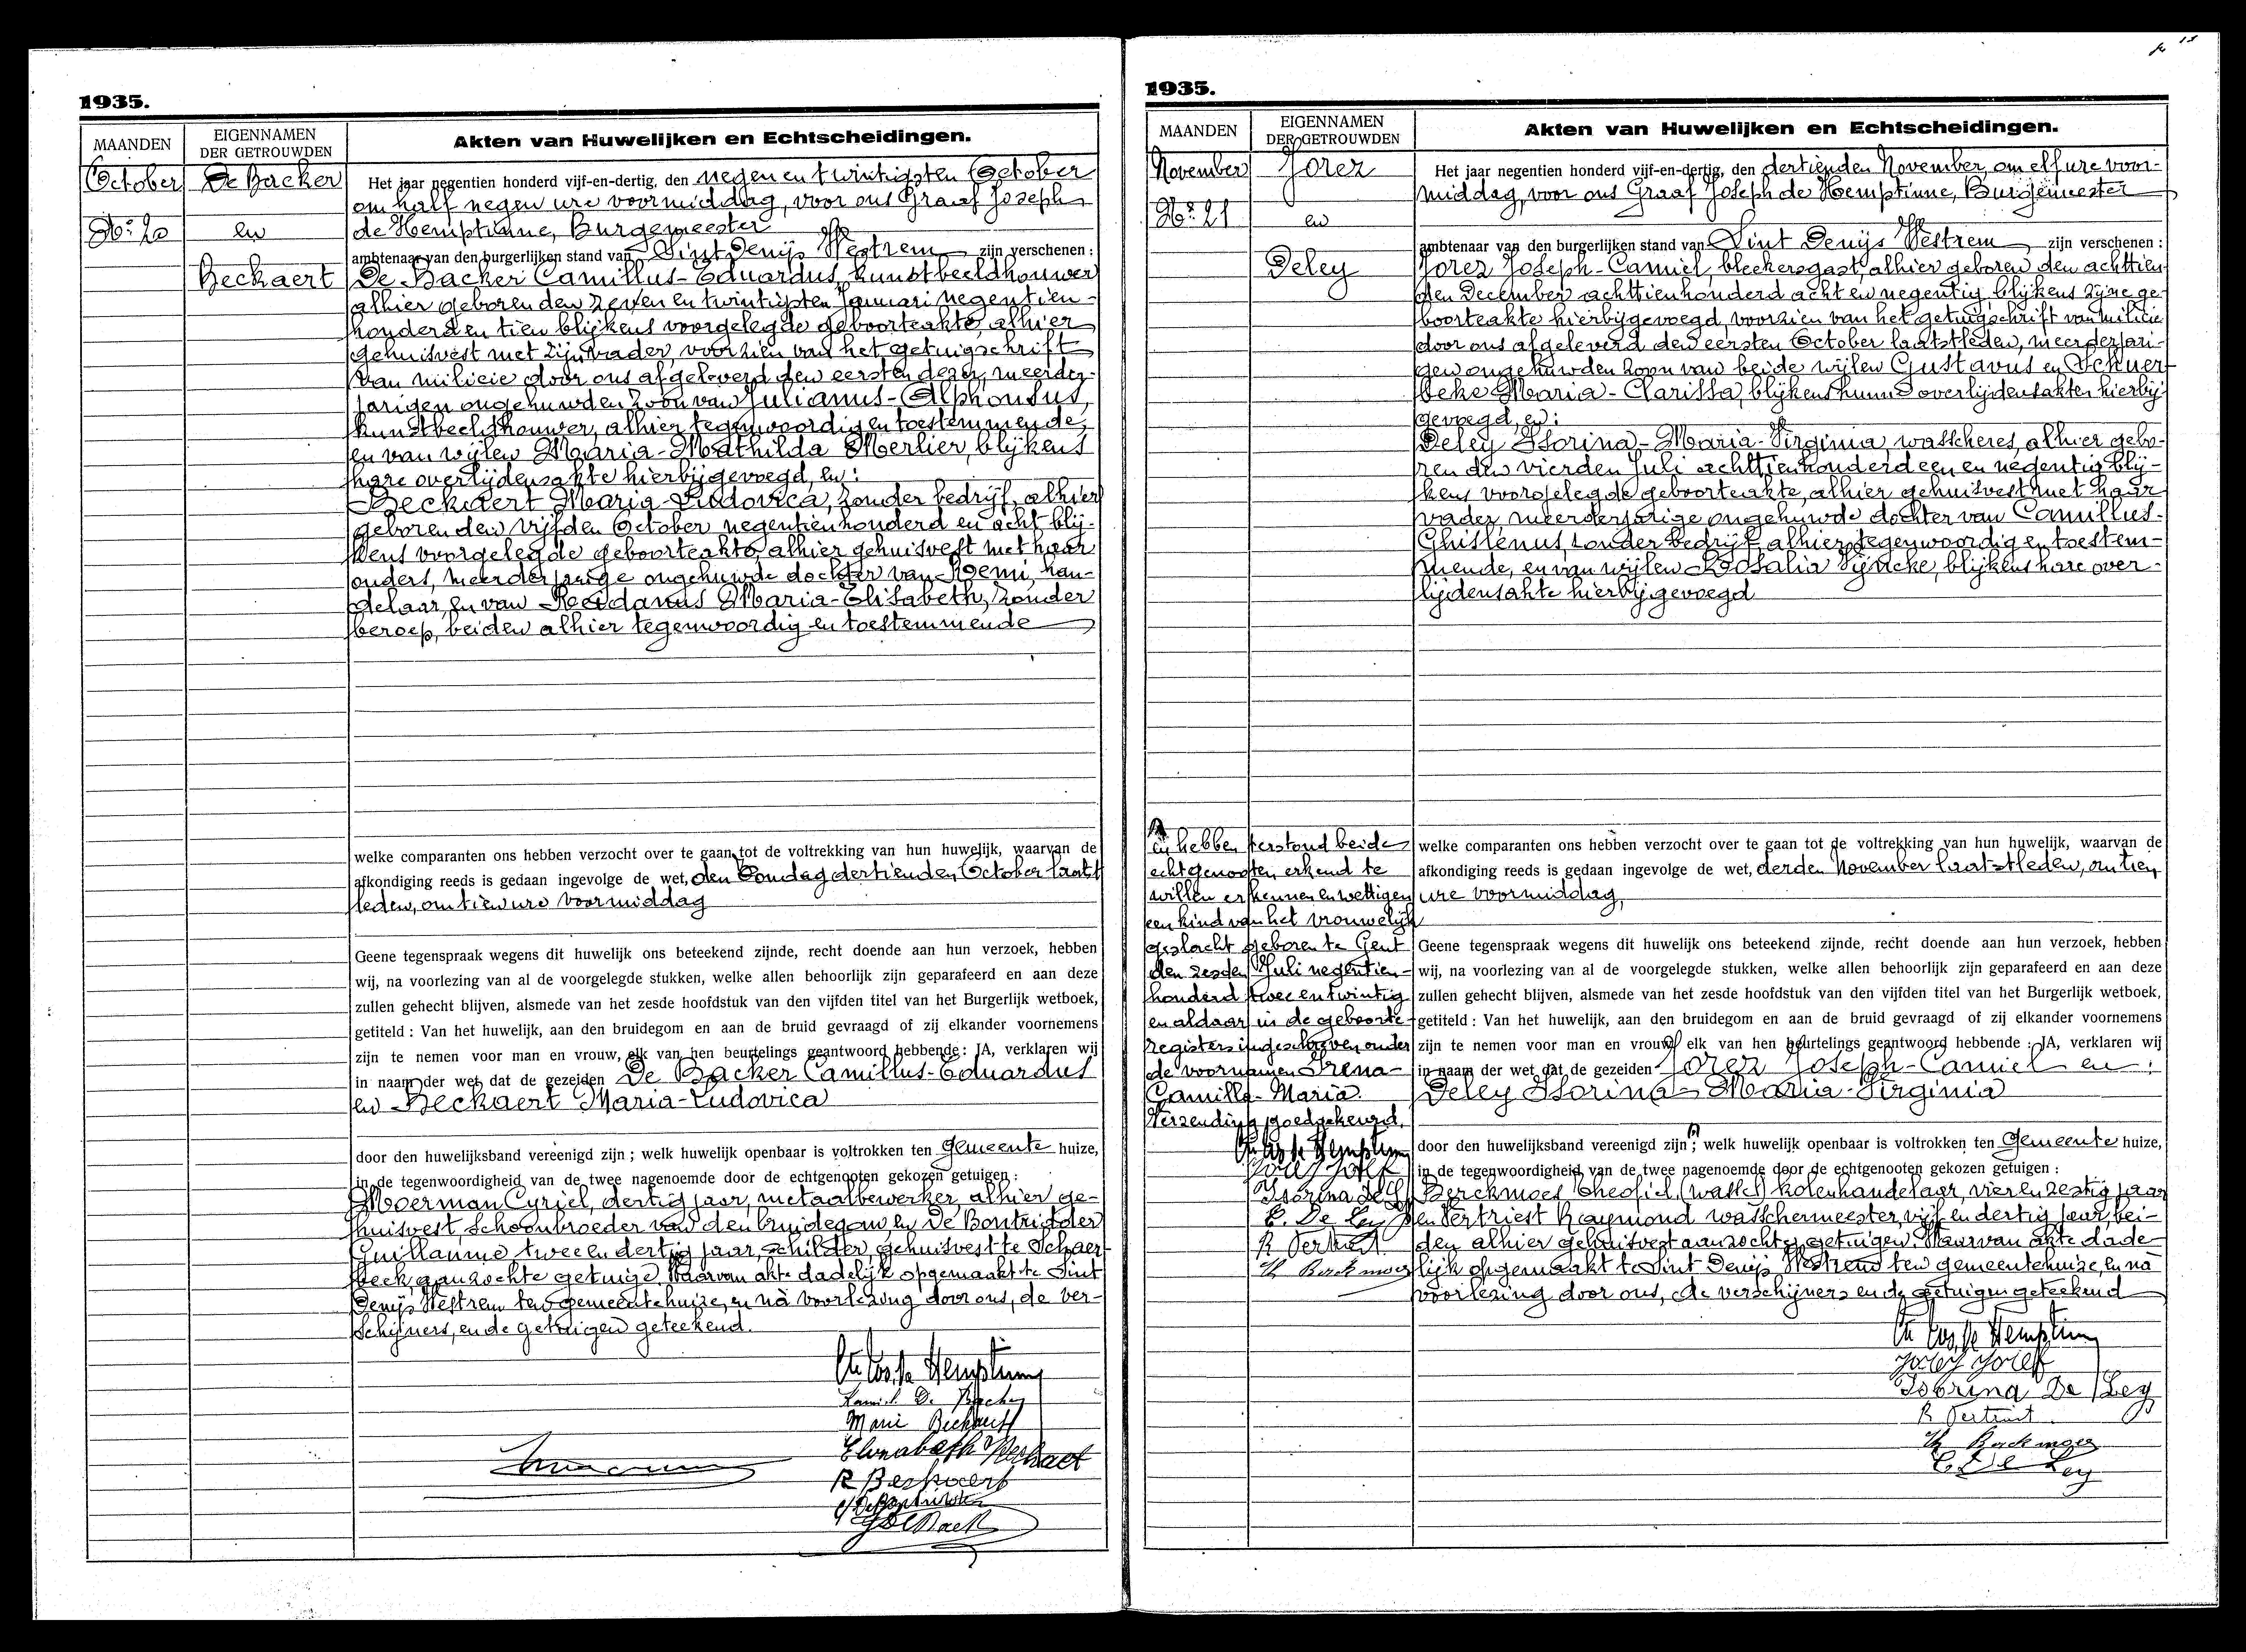 1935.
MAANDEN
EIGENNAMEN
DER GETROUWDEN
Akten van Huwelijken en Echtscheidingen.
October
De Backer
No 20
en
Beckaert
Het jaar negentien honderd vijf-en-dertig, den negen en twintigsten October
om half negen ure voormiddag, voor ons Graaf Joseph
de Hemptinne, Burgemeester
ambtenaar van den burgerlijken stand van Sint Denijs Westrem zijn verschenen :
De Backer Camillus-Eduardus, kunstbeeldhouwer
alhier geboren den zeven en twintigsten Januari negentien-
honderd en tien blijkens voorgelegde geboorteakte, alhier
gehuisvest met zijn vader, voorzien van het getuigschrift
van milicie door ons afgeleverd den eersten dezer, meerder-
jarigen ongehuwden zoon van Julianus-Alphonsus,
kunstbeeldhouwer, alhier tegenwoordig en toestemmende,
en van wijlen Maria-Mathilda Merlier, blijkens
hare overlijdensakte hierbijgevoegd, en :
Beckaert Maria-Ludovica, zonder bedrijf, alhier
geboren den vijfden October negentienhonderd en acht blij-
kens voorgelegde geboorteakte, alhier gehuisvest met haar
ouders, meerderjarige ongehuwde dochter van Remi, han-
delaar, en van Maria-Elisabeth, zonder
beroep, beiden alhier tegenwoordig en toestemmende
welke comparanten ons hebben verzocht over te gaan tot de voltrekking van hun huwelijk, waarvan de
afkondiging reeds is gedaan ingevolge de wet, den Zondag dertienden October laatst
leden, om tien ure voormiddag
Geene tegenspraak wegens dit huwelijk ons beteekend zijnde, recht doende aan hun verzoek, hebben
wij, na voorlezing van al de voorgelegde stukken, welke allen behoorlijk zijn geparafeerd en aan deze
zullen gehecht blijven, alsmede van het zesde hoofdstuk van den vijfden titel van het Burgerlijk wetboek,
getiteld : Van het huwelijk, aan den bruidegom en aan de bruid gevraagd of zij elkander voornemens
zijn te nemen voor man en vrouw, elk van hen beurtelings geantwoord hebbende : JA, verklaren wij
in naam der wet dat de gezeiden De Backer Camillus-Eduardus
en Beckaert Maria-Ludovica
door den huwelijksband vereenigd zijn ; welk huwelijk openbaar is voltrokken ten Gemeente huize,
in de tegenwoordigheid van de twee nagenoemde door de echtgenooten gekozen getuigen :
Moerman Cyriel, dertig jaar, metaalbewerker, alhier ge-
huisvest, schoonbroeder van den bruidegom en De Bontridder
Guillaume twee en dertig jaar, schilder, gehuisvest te Schaer-
beek, aanzochte getuige. Waarvan akte dadelijk opgemaakt te Sint
Denijs Westrem ten gemeentehuize, en nà voorlezing door ons, de ver-
schijners, en de getuigen geteekend.
Hemptinne
Kamiel De Backer
Marie Beckaert
Elisabeth
R Beckaert
1935.
MAANDEN
EIGENNAMEN
DER GETROUWDEN
Akten van Huwelijken en Echtscheidingen.
November
Jorez
No 21
en
Deley
Het jaar negentien honderd vijf-en-dertig, den dertienden November, om elf ure voor-
middag, voor ons Graaf Joseph de Hemptinne, Burgemeester
ambtenaar van den burgerlijken stand van Sint Denijs Westrem zijn verschenen :
Jorez Joseph-Camiel, bleekersgast, alhier geboren den achttien-
den December achttienhonderd acht en negentig, blijkens zijne ge-
boorteakte hierbijgevoegd, voorzien van het getuigschrift van milicie
door ons afgeleverd den eersten October laatstleden, meerderjari-
gen ongehuwden zoon van beide wijlen Gustavus en
Maria-Clarissa, blijkens hunne overlijdensakten hierbij
gevoegd, en :
Deley Isorina-Maria-Virginia, wasscheres, alhier gebo-
ren den vierden Juli achttienhonderd een en negentig blij-
kens voorgelegde geboorteakte, alhier gehuisvest met haar
vader, meerderjarige ongehuwde dochter van Camillus-
Ghislenus, zonder bedrijf alhier tegenwoordig en toestem-
mende, en van wijlen Rosalia Sijncke, blijkens hare over-
lijdensakte hierbijgevoegd
welke comparanten ons hebben verzocht over te gaan tot de voltrekking van hun huwelijk, waarvan de
afkondiging reeds is gedaan ingevolge de wet, derden November laatstleden, om tien
ure voormiddag,
Geene tegenspraak wegens dit huwelijk ons beteekend zijnde, recht doende aan hun verzoek, hebben
wij, na voorlezing van al de voorgelegde stukken, welke allen behoorlijk zijn geparafeerd en aan deze
zullen gehecht blijven, alsmede van het zesde hoofdstuk van den vijfden titel van het Burgerlijk wetboek,
getiteld : Van het huwelijk, aan den bruidegom en aan de bruid gevraagd of zij elkander voornemens
zijn te nemen voor man en vrouw elk van hen beurtelings geantwoord hebbende : JA, verklaren wij
in naam der wet dat de gezeiden Jorez Joseph-Camiel en :
Deley Isorina-Maria-Virginia
door den huwelijksband vereenigd zijn ; welk huwelijk openbaar is voltrokken ten Gemeente huize,
in de tegenwoordigheid van de twee nagenoemde door de echtgenooten gekozen getuigen :
Berckmoes Theofiel, kolenhandelaar, vier en zestig jaar
en Vertriest Raymond wasschermeester, vijf en dertig jaar, bei-
den alhier gehuisvest aanzochte getuigen. Waarvan akte dade-
lijk opgemaakt te Sint Denijs Westrem ten gemeentehuize, en nà
voorlezing door ons, de verschijners en de getuigen geteekend
en hebben terstond beide
echtgenooten erkend te
willen erkennen en wettigen
een kind van het vrouwelijk
geslacht geboren te Gent
den zesden Juli negentien-
honderd twee en twintig
en aldaar in de geboorte-
registers ingeschreven onder
de voornamen Irena-
Camilla-Maria.
Verzending goedgekeurd.
Hemptinne
Jorez Jozef
Isorina De Ley
C. De Ley
R Vertriest
Th Berckmoes
Hemptinne
Jorez Jozef
Isorina De Ley
R Vertriest
Th Berckmoes
C De Ley